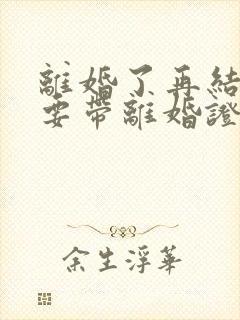 離婚了再結
要帶離婚證
余生浮華